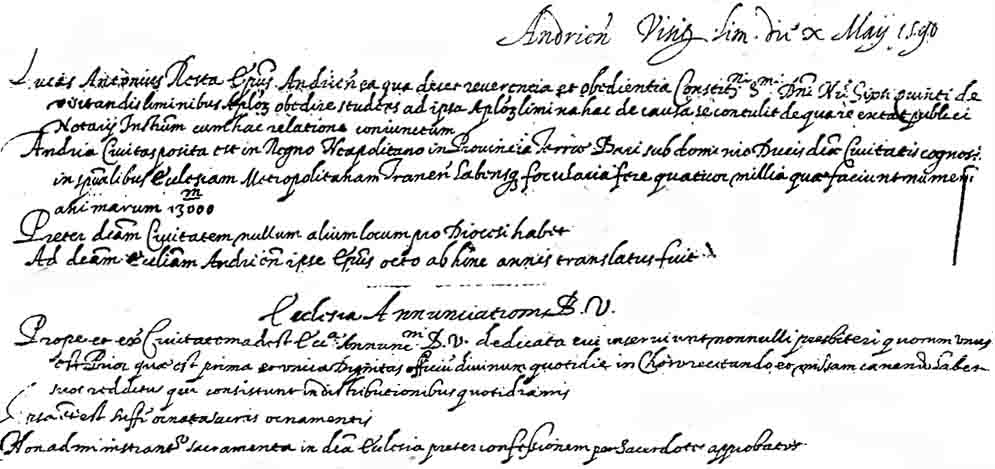 Andrien Visig lim. die x Maij 1590
Lucas Antonius Resta Epus Andrien ea qua decet reverencia et obedientia Constitnis Smi Dni Nri Sixti quinti de
visitandis liminibus Aploz obedire studens ad ipsa Aploz limina hac de causa se contulit de qua re extat publici
Notarij Instrum cum hac relatione coniunctum
Andria Civitas posita est in Regno Neapolitano in Provincia Terrae Bari sub dominio Ducis dictae Civitatis
in spualibus Eclesiam Metropolitanam Tranen habensq focularia fere quatuor millia quae faciunt numeru
animarum 13000 m
Preter dcam Civitatem nullum alium locum pro Diocesi habet
Ad dcam Ecliam Andrien ipse Epus octo ab hinc annis translatus fuit
Eclesia Annunciationis B. V.
Prope et ex Civitatem adest Annunc B. V. dedicata cui inserviunt nonnulli presbiteri quorum unus
est Prior quae est prima et unica Dignitas officiu divinum quotidie in Choro recitando et missam canendo habent
suos redditus qui consistunt in distributionibus quotidianis
est suffi ornata sacris ornamentis
Non administrant Sacramenta in dca Eclesia preter confessionem per Sacerdote approbatos